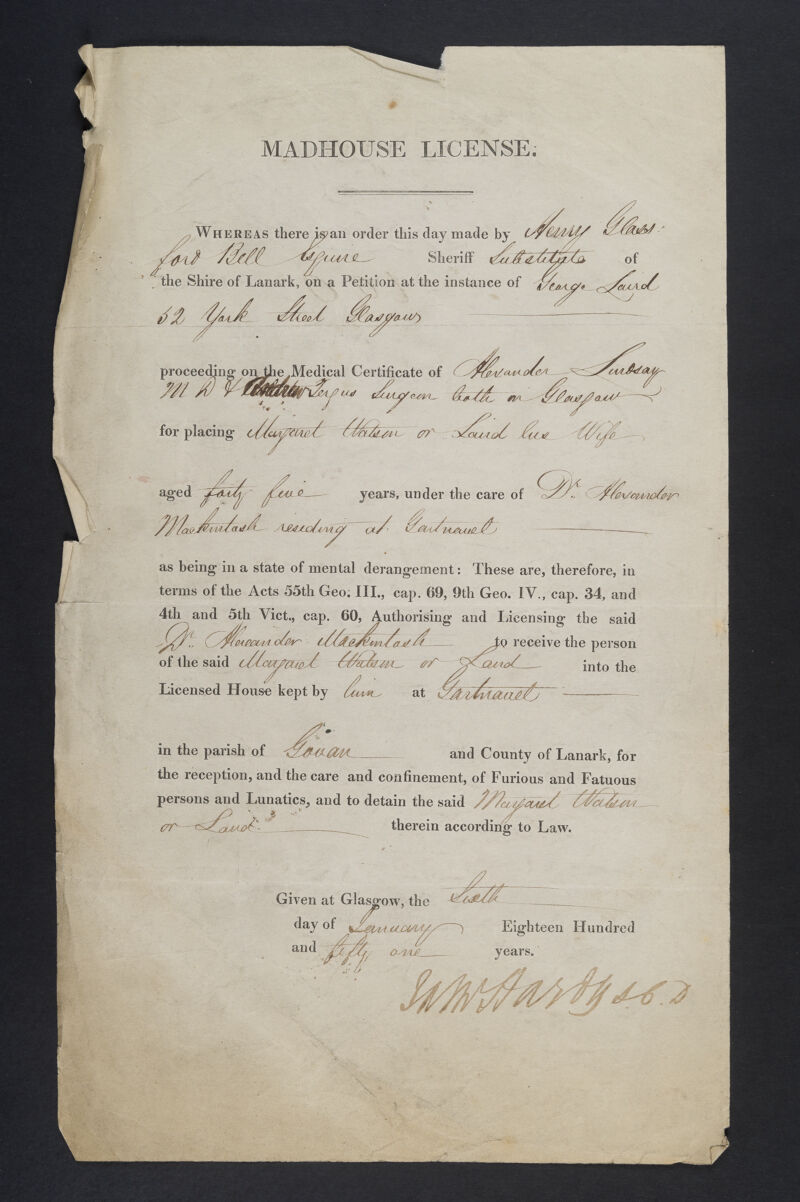 MADHOUSE LICENSE.
WHEREAS there is an order this day made by Henry Glass-
ford Bell Esquire Sheriff Substitute of
the Shire of Lanark, on a Petition at the instance of George Laird
52 York Street Glasgow
proceeding on the Medical Certificate of Alexander Lindsay
M D & Andrew Fergus Surgeon both in Glasgow
for placing Margaret Watson or Laird his Wife
aged forty five years, under the care of Dr. Alexander
Mackintosh residing at Gartnavel
as being in a state of mental derangement: These are, therefore, in
terms of the Acts 55th Geo. III., cap. 69, 9th Geo. IV., cap. 34, and
4th and 5th Vict., cap. 60, Authorising and Licensing the said
Dr. Alexander Mackintosh to receive the person
of the said Margaret Watson or Laird into the
Licensed House kept by him at Gartnavel
in the parish of Govan and County of Lanark, for
the reception, and the care and confinement, of Furious and Fatuous
persons and Lunatics, and to detain the said Margaret Watson
or Laird therein according to Law.
Given at Glasgow, the Sixth
day of January Eighteen Hundred
and fifty one years.
Hardy